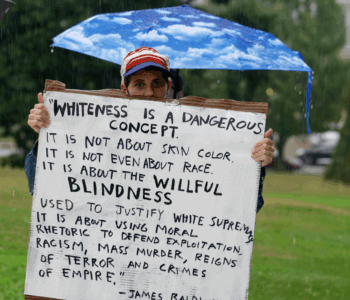 "WHITENESS IS A DANGEROUS
CONCEPT.
IT IS NOT ABOUT SKIN COLOR.
IT IS NOT EVEN ABOUT RACE.
IT IS ABOUT THE WILLFUL
BLINDNESS
USED TO JUSTIFY WHITE SUPREMA
IT IS ABOUT USING MORAL
RHETORIC TO DEFEND EXPLOITATION,
RACISM, MASS MURDER, REIGNS
OF TERROR AND CRIMES
OF EMPIRE."
-JAMES BALD